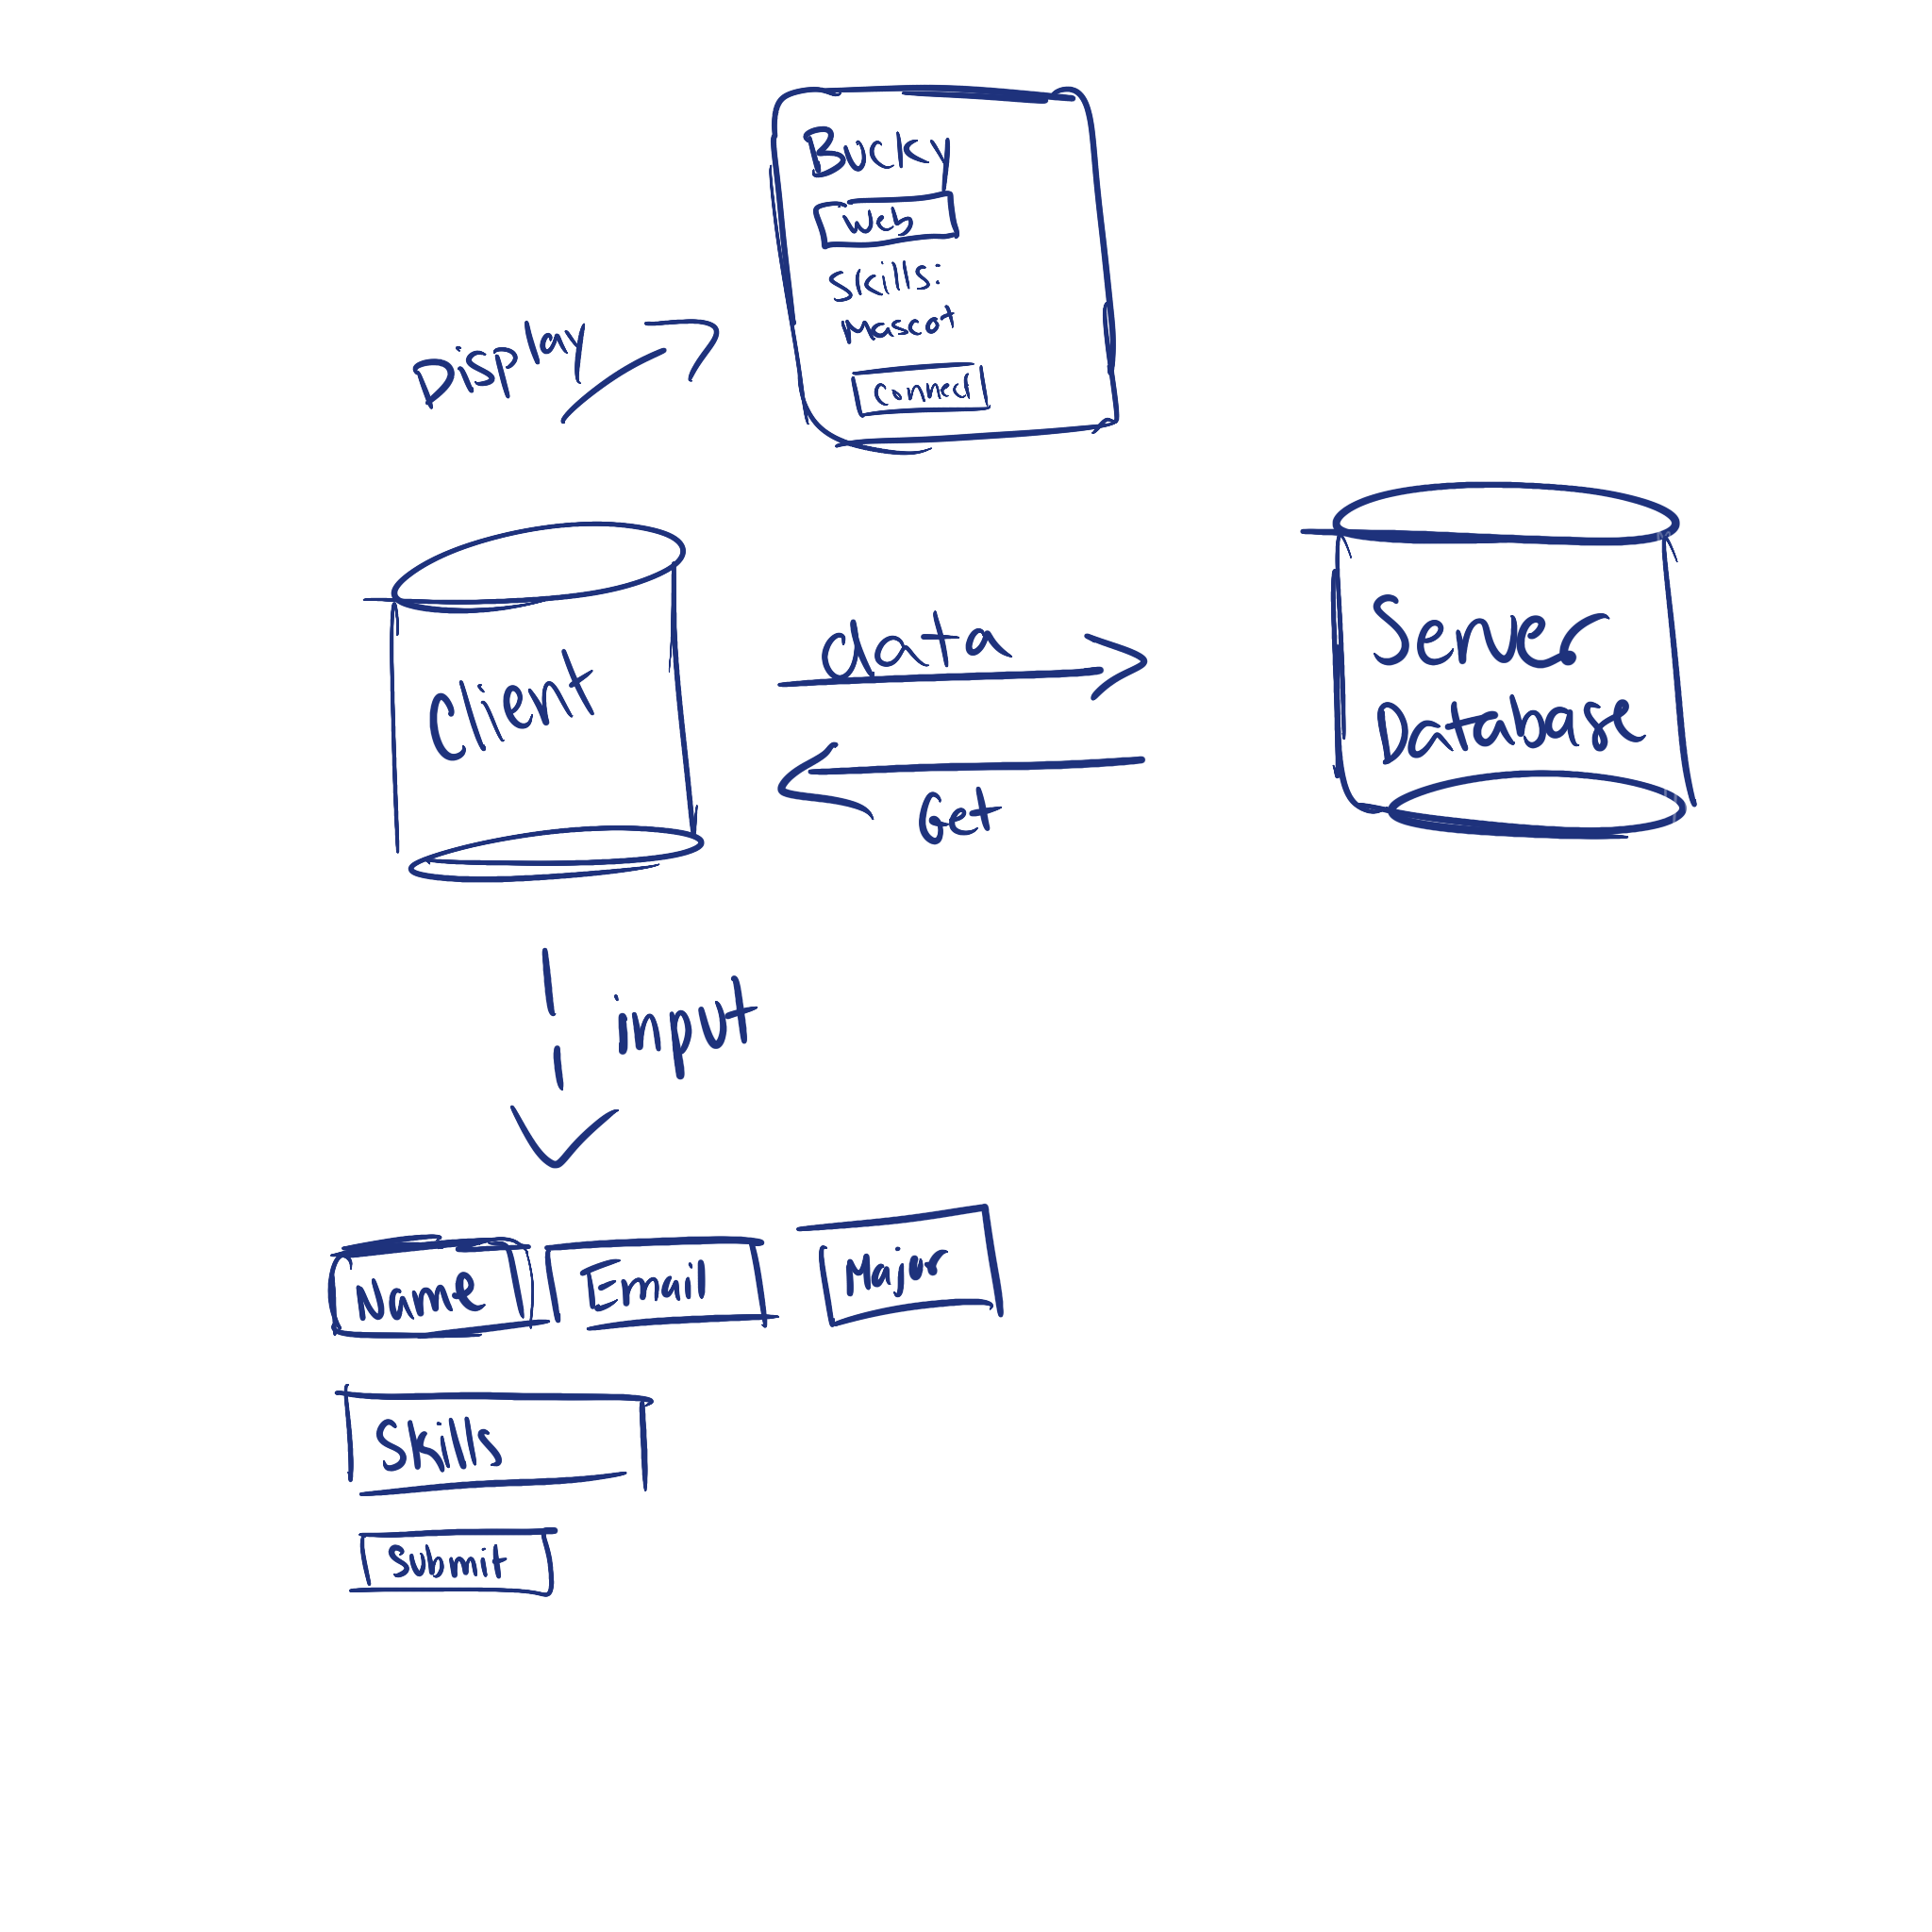 Bucky
Web
Skills:
Mascot
Connect
Display
Client
data
Get
Server
Database
input
Name Email Major
Skills
Submit